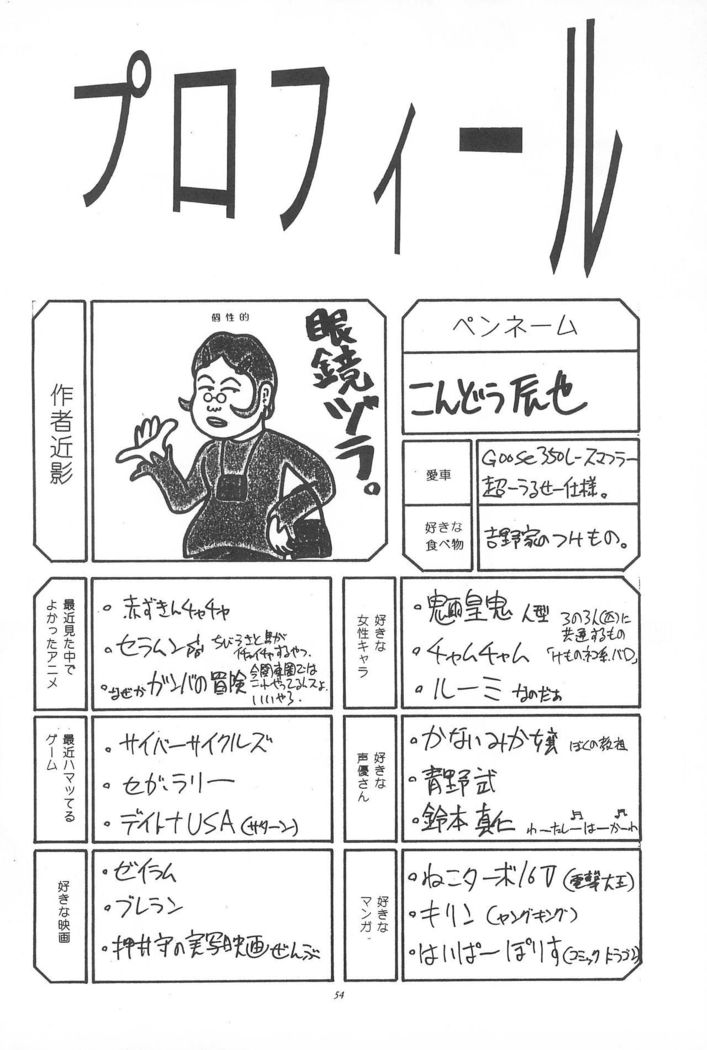 プロフィール
作者近影
個性的
眼鏡ヅラ。
ペンネーム
こんどう辰也
愛車
Goose350レースマフラー
超ーうるせー仕様。
好きな
食べ物
吉野家のつけもの。
最近見た中で
よかったアニメ
・赤ずきんチャチャ
・セラムン
ちびうさと馬が
イチャイチャするやつ。
・なぜかガンバの冒険
今関東圏では
ニートやってるんスよ。
いいやろ
好きな
女性キャラ
・魎皇鬼 人型
・チャムチャム
・ルーミィ なのだぁ
この3人(匹)に
共通するもの
「けものネコ系、バロ」
最近ハマッてる
ゲーム
・サイバーサイクルズ
・セガ・ラリー
・デイトナUSA(サターン)
好きな
声優さん
・かないみか嬢 ぼくの教祖
・青野武
・鈴木真仁 わーたしーはーかーわ
好きな映画
・ゼイラム
・ブレラン
・押井守の実写映画ぜんぶ
好きな
マンガ
・ねこターボ16V(電撃大王)
・キリン(ヤングキング)
・はいぱーぽりす(コミックドラゴン)
54